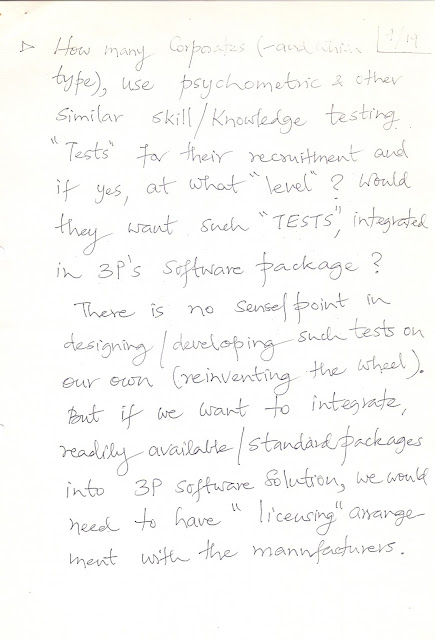 ▷ How many Corporates (-and which
type), use psychometric & other
similar skill/knowledge testing
"Tests" for their recruitment and
if yes, at what "level"? Would
they want such "TESTS", integrated
in 3P's software package?
There is no sense/point in
designing/developing such tests on
our own (reinventing the wheel).
But if we want to integrate,
readily available/standard packages
into 3P software solution, we would
need to have "licensing" arrange-
ment with the mannfacturers.